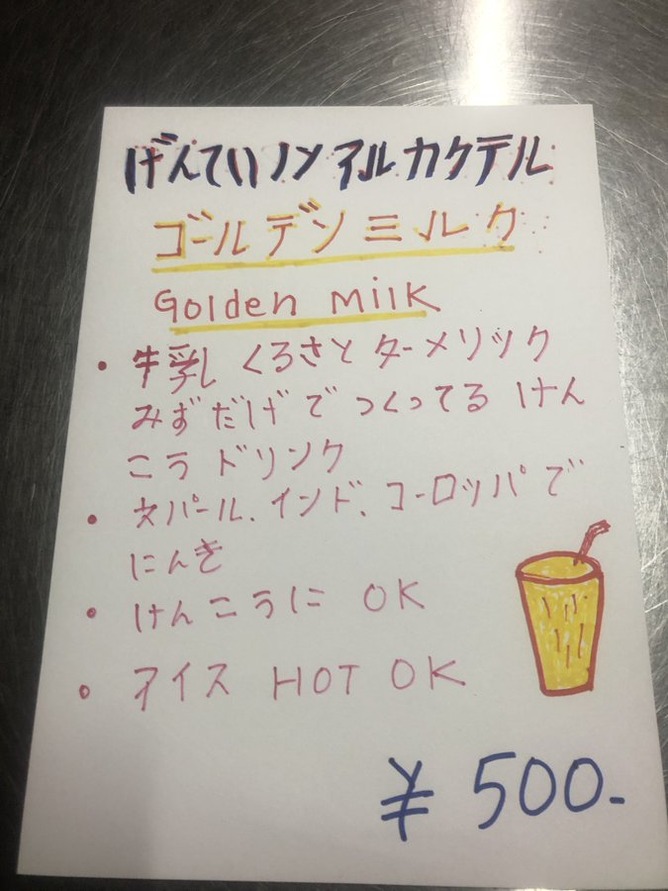 げんてい ノンアルカクテル
ゴールデンミルク
Golden Milk
• 牛乳 くろさとターメリック
みずだけ゛でつくってる けん
こうドリンク
• ネパール、インド、ヨーロッパで
にんき
• けんこうに OK
• アイス HOT OK
¥ 500-